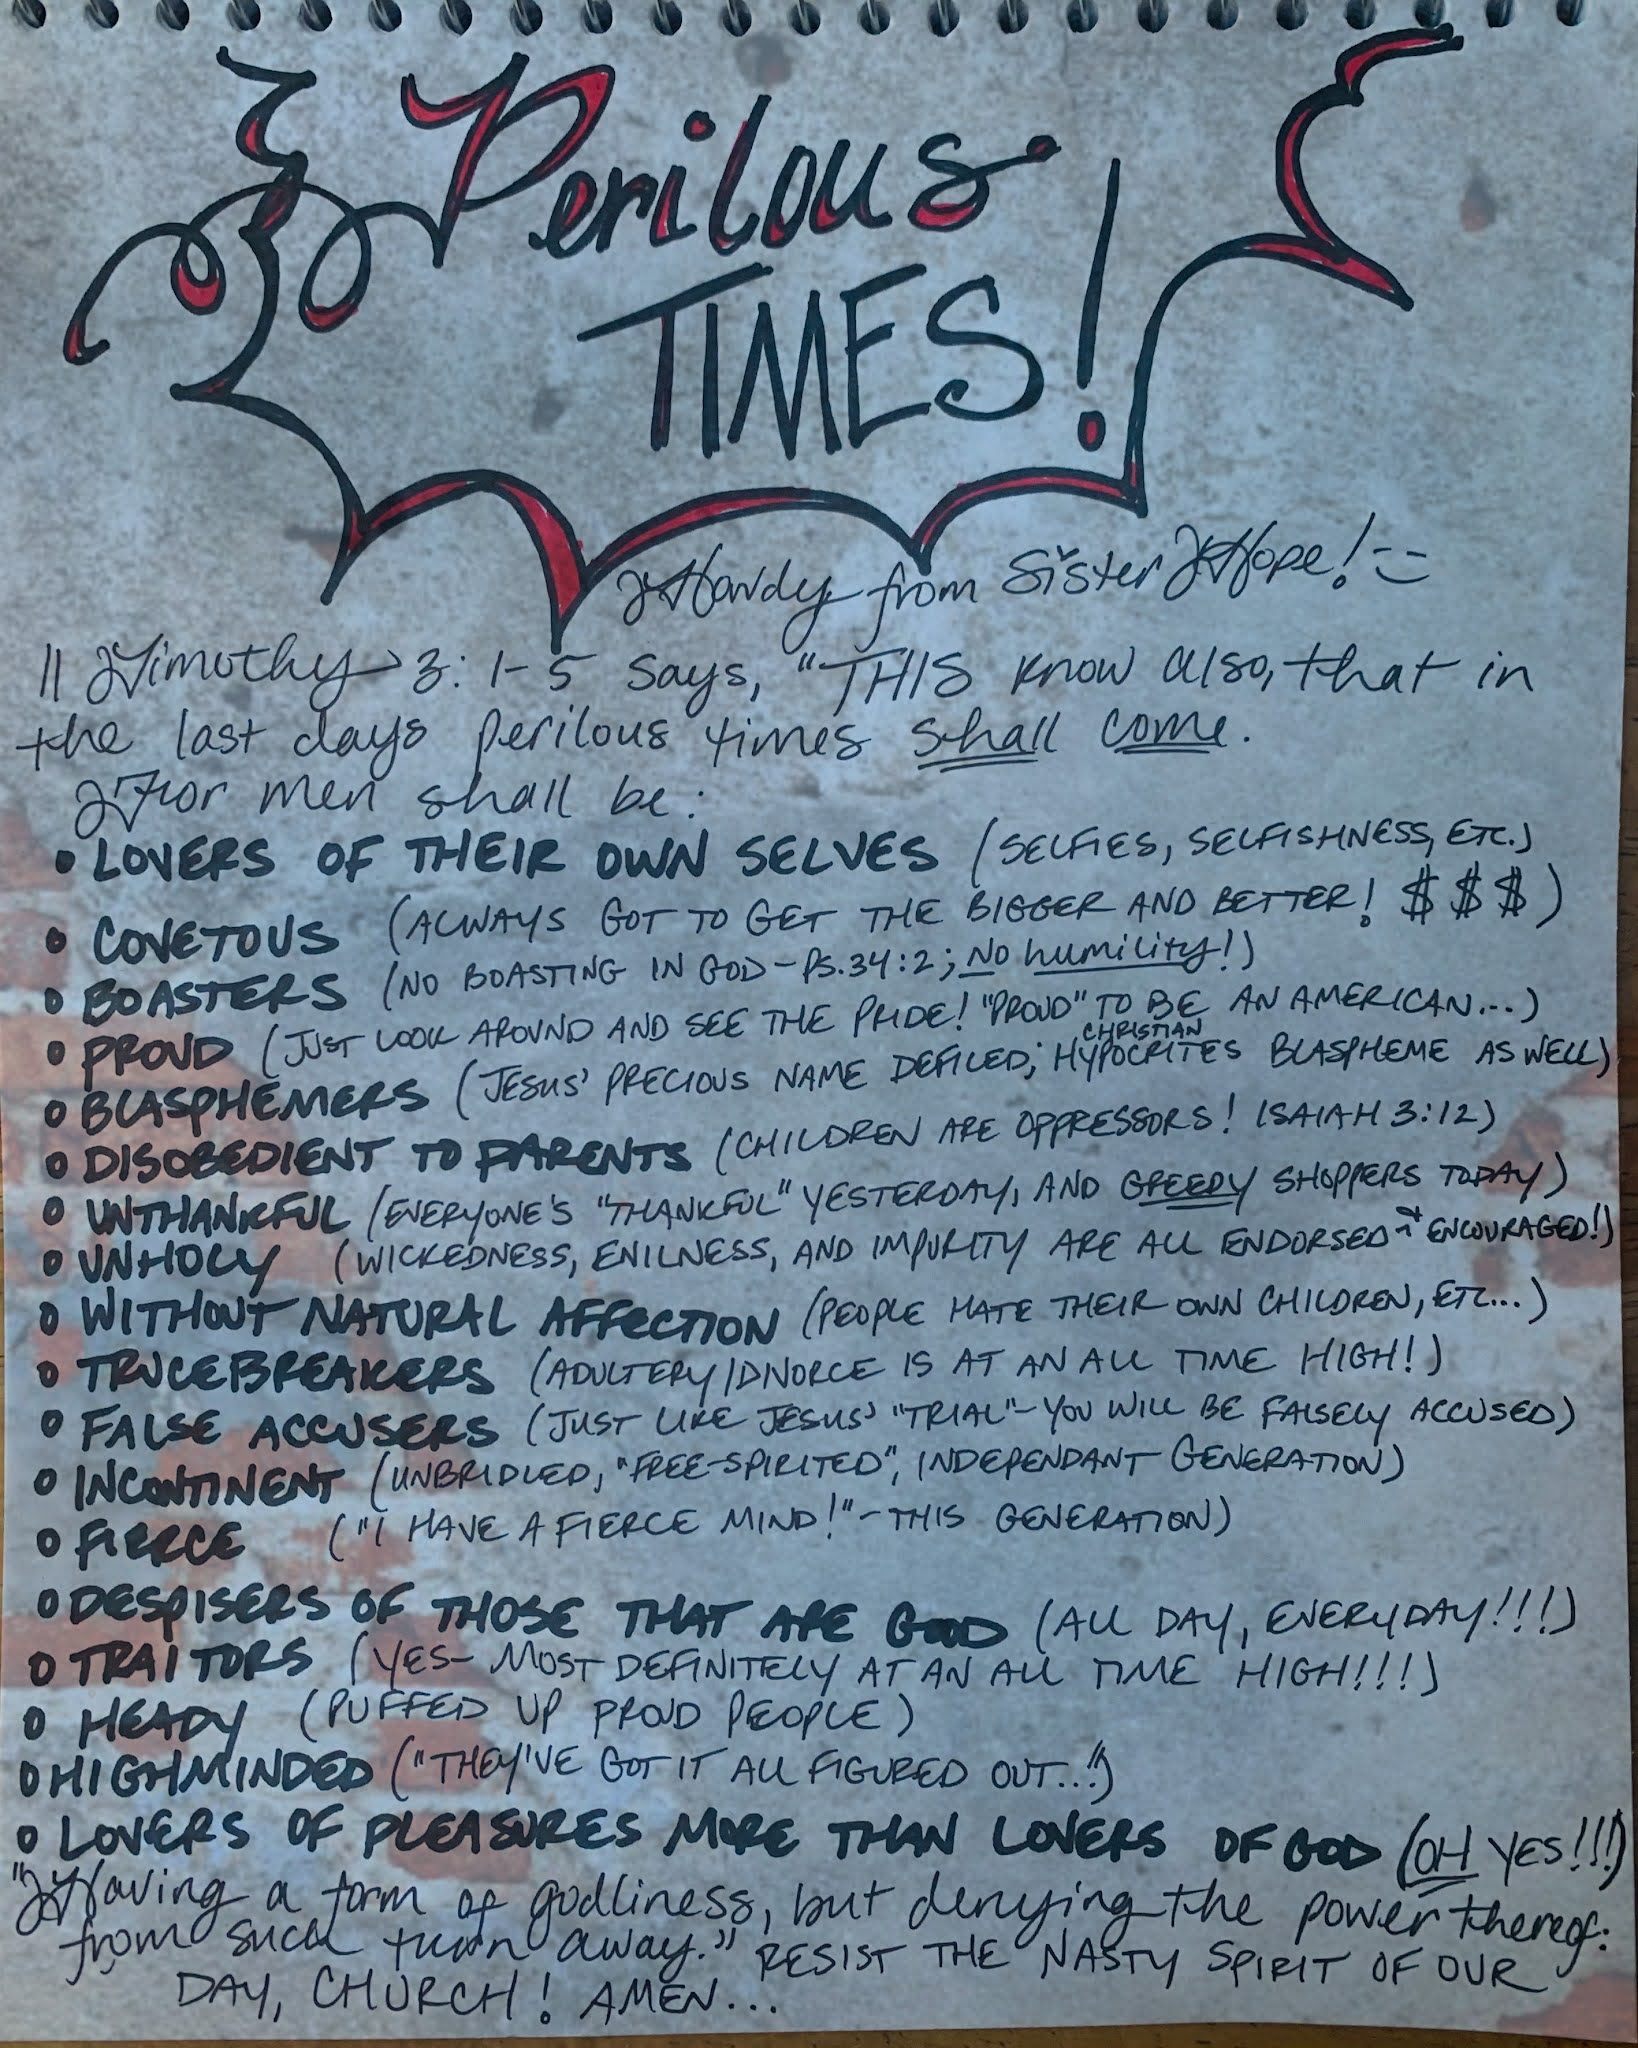 Perilous
TIMES!
Howdy from Sister Hope! :)
II Timothy 3:1-5 says, "THIS know also, that in
the last days perilous times shall come.
For men shall be:
• LOVERS OF THEIR OWN SELVES (SELFIES, SELFISHNESS, ETC.)
• COVETOUS (ALWAYS GOT TO GET THE BIGGER AND BETTER! $ $ $)
• BOASTERS (NO BOASTING IN GOD-PS.34:2; NO humility!)
• PROUD (JUST LOOK AROUND AND SEE THE PRIDE! "PROUD" TO BE AN AMERICAN...)
• BLASPHEMERS (JESUS' PRECIOUS NAME DEFILED; CHRISTIAN HYPOCRITES BLASPHEME AS WELL)
• DISOBEDIENT TO PARENTS (CHILDREN ARE OPPRESSORS! ISAIAH 3:12)
• UNTHANKFUL (EVERYONE'S "THANKFUL" YESTERDAY, AND GREEDY SHOPPERS TODAY)
• UNHOLY (WICKEDNESS, EVILNESS, AND IMPURITY ARE ALL ENDORSED + ENCOURAGED!)
• WITHOUT NATURAL AFFECTION (PEOPLE HATE THEIR OWN CHILDREN, ETC...)
• TRUCEBREAKERS (ADULTERY/DIVORCE IS AT AN ALL TIME HIGH!)
• FALSE ACCUSERS (JUST LIKE JESUS' "TRIAL"-YOU WILL BE FALSELY ACCUSED)
• INCONTINENT (UNBRIDLED, "FREE-SPIRITED", INDEPENDANT GENERATION)
• FIERCE ("I HAVE A FIERCE MIND!"-THIS GENERATION)
• DESPISERS OF THOSE THAT ARE GOOD (ALL DAY, EVERYDAY!!!)
• TRAITORS (YES-MOST DEFINITELY AT AN ALL TIME HIGH!!!)
• HEADY (PUFFED UP PROUD PEOPLE)
• HIGHMINDED ("THEY'VE GOT IT ALL FIGURED OUT...")
• LOVERS OF PLEASURES MORE THAN LOVERS OF GOD (OH YES!!!)
"Having a form of godliness, but denying the power thereof:
from such turn away." RESIST THE NASTY SPIRIT OF OUR
DAY, CHURCH! AMEN...